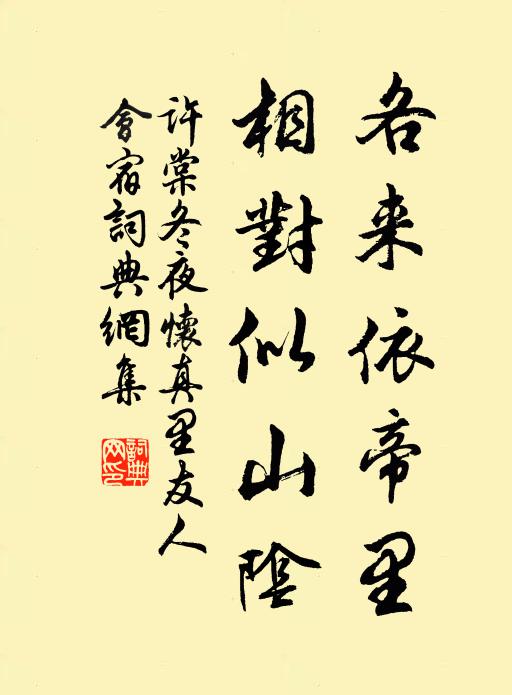 各来依帝里
相對似山陰
許棠冬夜懷真里友人
會宿詞典網集
詞典
网印